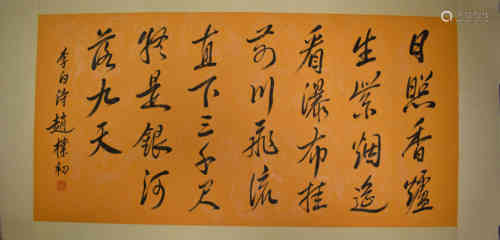 日照香罏
生紫烟遥
看瀑布挂
前川飛流
直下三千尺
疑是銀河
落九天
李白诗趙樸初